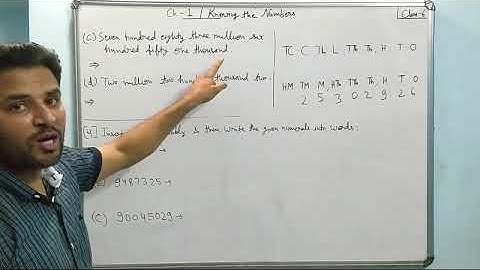 Ch-1 / Knowing the Numbers
Class-6
(c) Seven hundred eighty three million six
hundred fifty one thousand
⇒
(d) Two million two hundred thousand two.
⇒
TC C TL L TTh Th H T O
HM TM M HTh TTh Th H T O
2 5 3 0 2 9 2 6
4] & then write the given numerals into words:
9487325 →
(C) 90045029 →